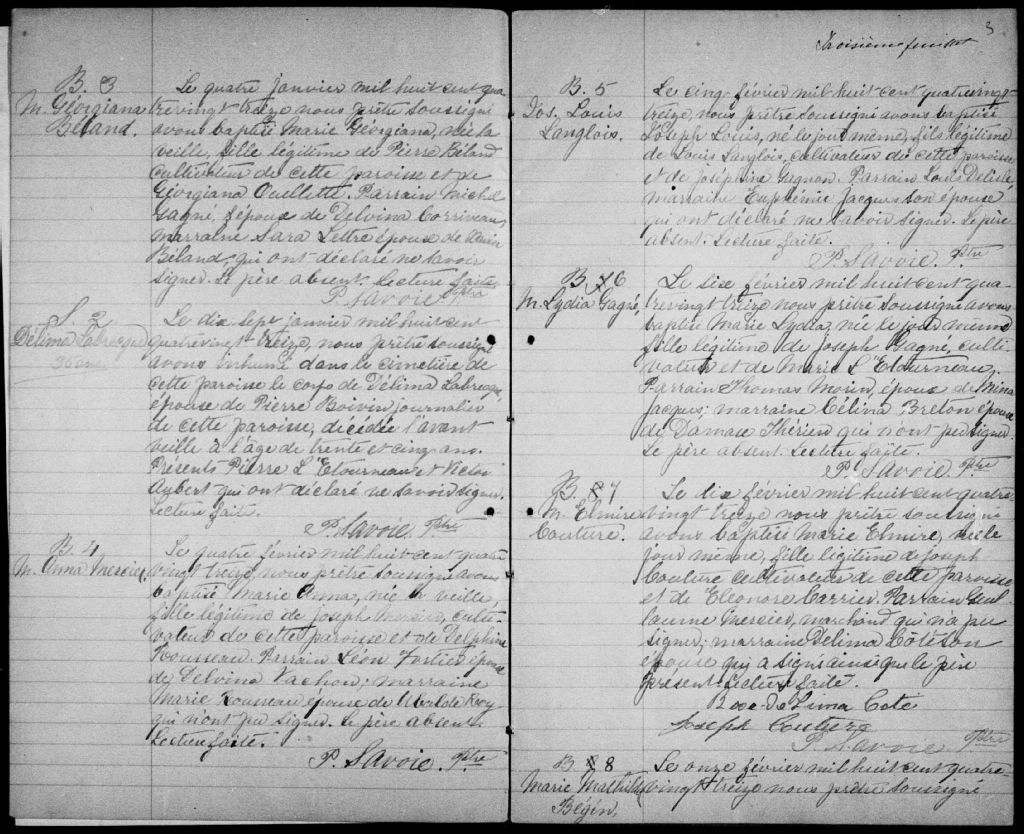 B. 3
M. Géorgiana
Béland.
Le quatre janvier mil huit cent qua
trevingt treize nous prêtre soussigné
avons baptisé Marie Géorgiana, née la
veille, fille légitime de Pierre Béland
cultivateur de cette paroisse et de
Géorgiana Ouellette. Parrain Michel
Gagné, époux de Delvina Corriveau,
marraine Sara Lettre épouse de
Béland, qui ont déclaré ne savoir
signer. Le père absent. Lecture faite.
P. Savoie Ptre
S. 2
Délima Labrecque
35 ans
Le dix sept janvier mil huit cent
quatrevingt treize, nous prêtre soussigné
avons inhumé dans le cimetière de
cette paroisse le corps de Délima Labrecque,
épouse de Pierre Boivin journalier
de cette paroisse, décédée l'avant
veille à l'âge de trente et cinq ans.
Présents Pierre L'Etourneau et Victor
Aubert qui ont déclaré ne savoir signer.
Lecture faite.
P. Savoie. Ptre
B. 4
M. Anna Mercier
Le quatre février mil huit cent quatre
vingt treize, nous prêtre soussigné avons
baptisé Marie Anna, née la veille
fille légitime de Joseph Mercier, culti-
vateur de cette paroisse et de Delphine
Rousseau. Parrain Léon Fortier époux
de Delvina Vachon; marraine
Marie Rousseau épouse de Roy
qui n'ont pu signer. Le père absent.
Lecture faite.
P. Savoie. Ptre
3
Troisième feuillet
B. 5
Jos. Louis
Langlois.
Le cinq février mil huit cent quatrevingt-
treize, nous prêtre soussigné avons baptisé
Joseph Louis, né le jour même, fils légitime
de Louis Langlois, cultivateur de cette paroisse
et de Joséphine Gagnon. Parrain Louis Delisle
marraine Euphémie Jacques son épouse
qui ont déclaré ne savoir signer. Le père
absent. Lecture faite.
P. Savoie. Ptre
B. 6
M. Lydia Gagné,
Le dix février mil huit cent qua-
trevingt treize nous prêtre soussigné avons
baptisé Marie Lydia, née le jour même
fille légitime de Joseph Gagné, culti-
vateur et de Marie L'Etourneau,
Parrain Thomas Morin, époux de Mina
Jacques; marraine Célina Breton épouse
de Damase Thérien qui n'ont pu signer.
Le père absent. Lecture faite.
P. Savoie Ptre
B. 7
M. Elmire
Couture.
Le dix février mil huit cent quatre-
vingt treize nous prêtre soussigné
avons baptisé Marie Elmire, née le
jour même, fille légitime de Joseph
Couture cultivateur de cette paroisse
et de Eleonore Carrier. Parrain Guil
laume Mercier, marchand qui n'a pu
signer; marraine Délima Côté son
épouse qui a signé ainsi que le père
présent. Lecture faite.
Rose-de-Lima Coté
Joseph Couture
P. Savoie Ptre
B. 8
Marie Mathilde
Bégin,
Le onze février mil huit cent quatre-
vingt treize nous prêtre soussigné